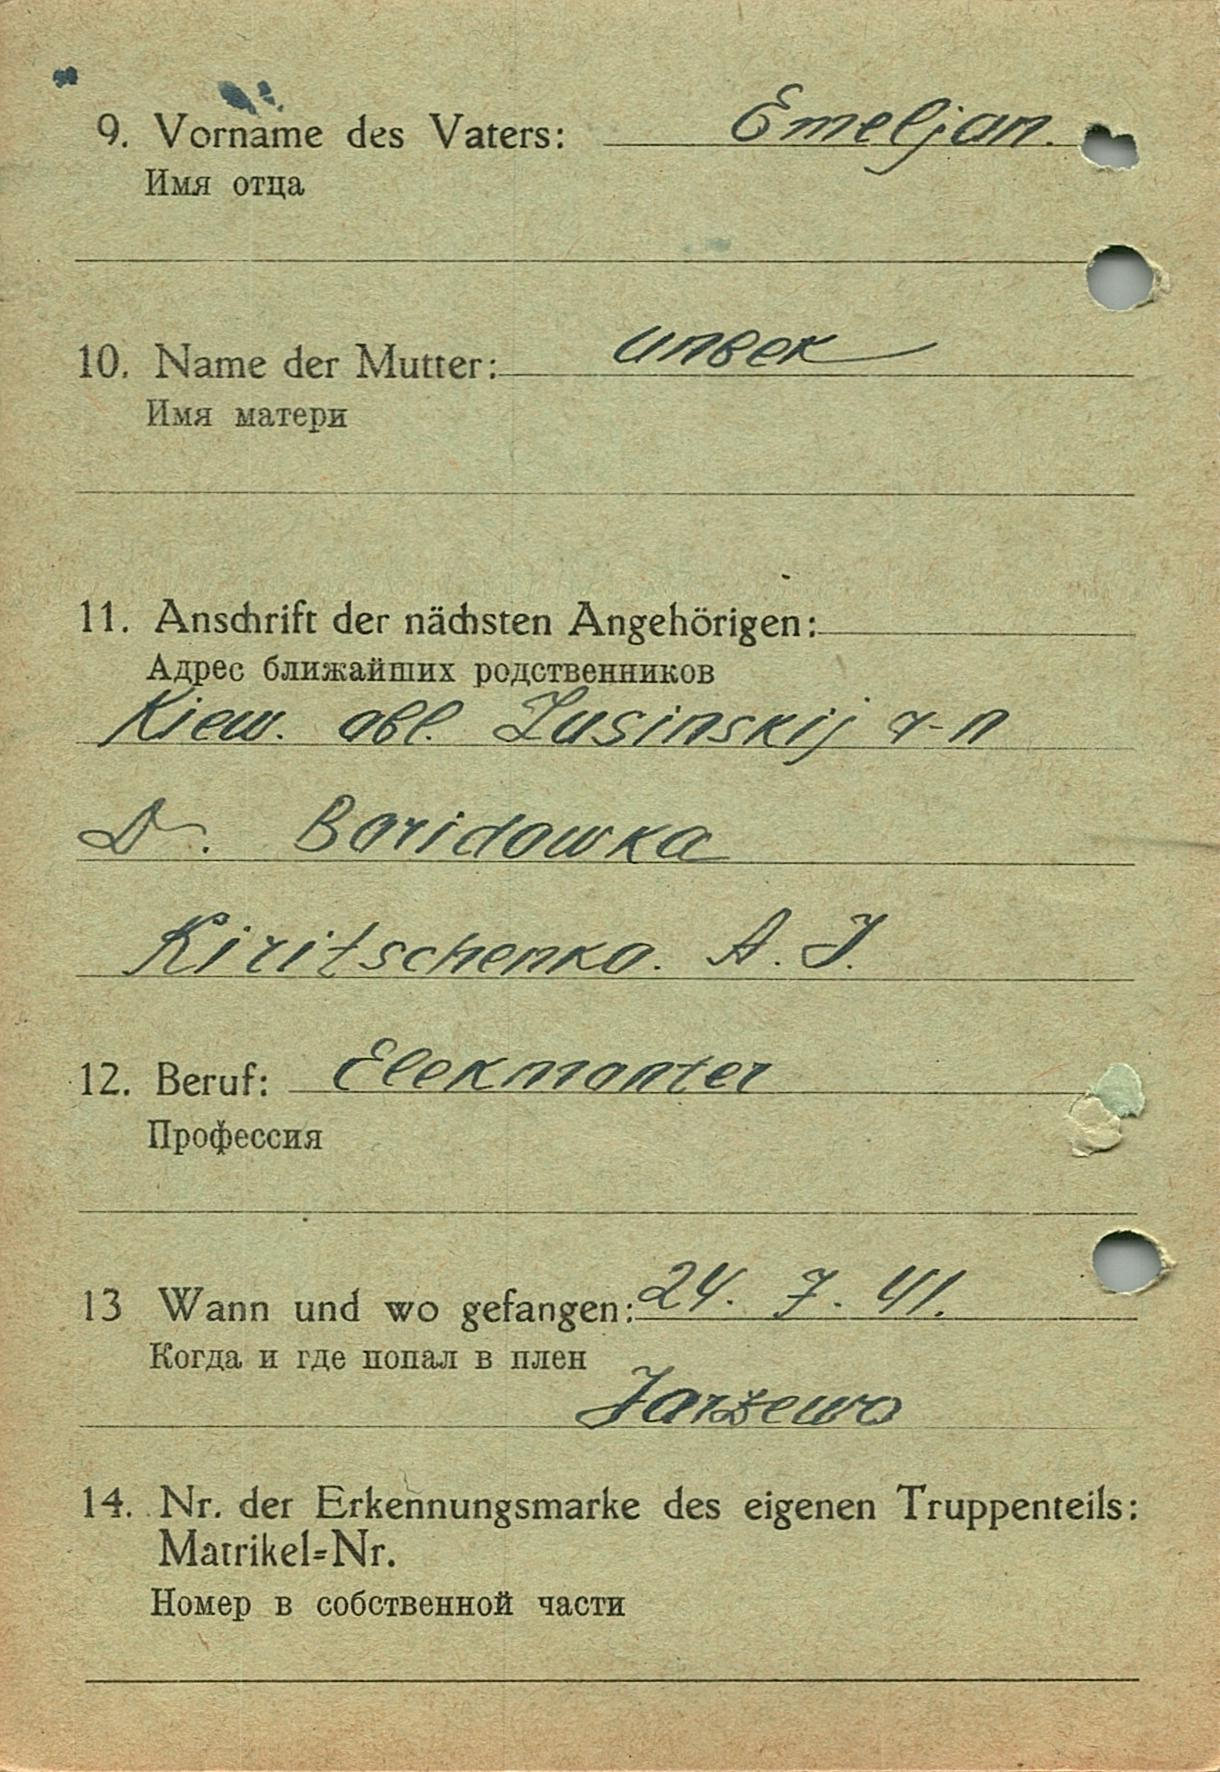 9. Vorname des Vaters: Emeljan.
Имя отца
10. Name der Mutter: unbek
Имя матери
11. Anschrift der nächsten Angehörigen:
Адрес ближайших родственников
Kiew. obl. Lusinskij r-n
D. Boridowka
Kiritschenko. A. J.
12. Beruf: Elekmonter
Профессия
13 Wann und wo gefangen: 24. 7. 41.
Когда и где попал в плен
Jarzewo
14. Nr. der Erkennungsmarke des eigenen Truppenteils:
Matrikel=Nr.
Номер в собственной части